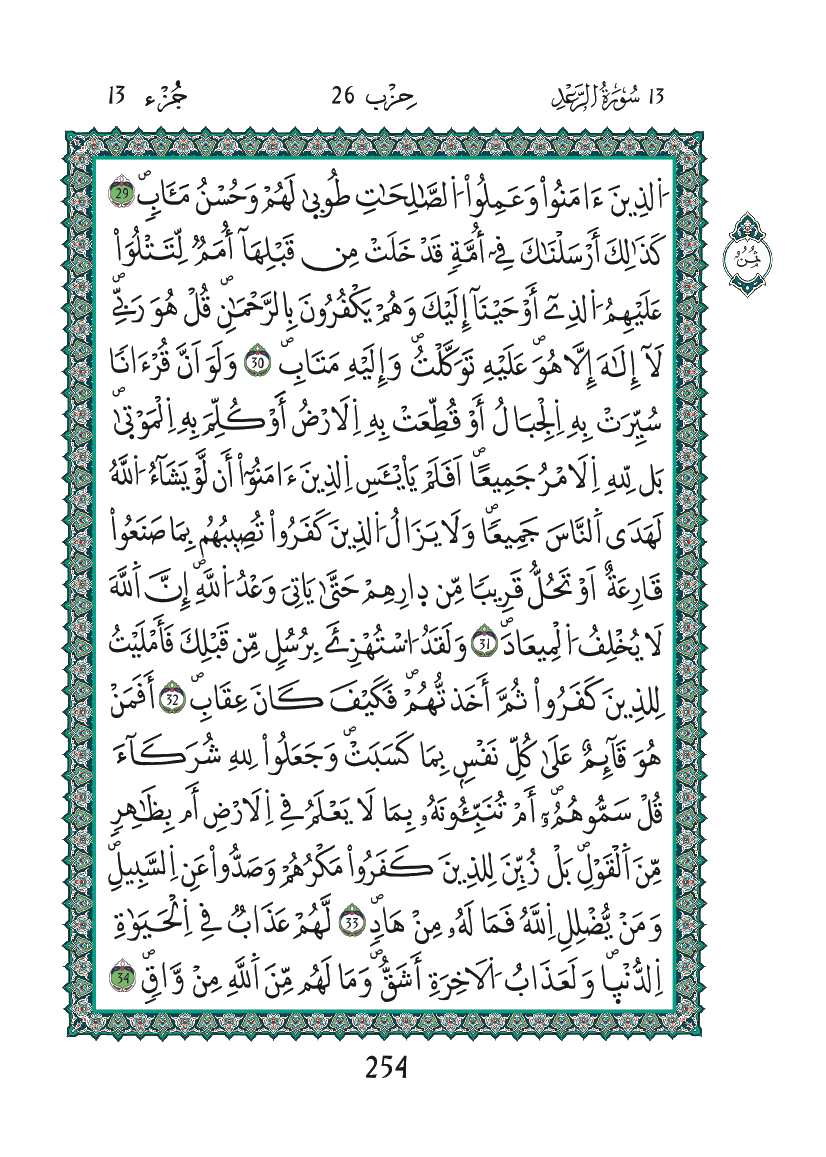 13 سُورَةُ الرَّعْدِ حِزْب 26 جُزْء 13
اَ۬لذِينَ ءَامَنُواْ وَعَمِلُواْ اُ۬لصَّٰلِحَٰتِ طُوب۪ىٰ لَهُمْ وَحُسْنُ مَـَٔابٖۖ 29
كَذَٰلِكَ أَرْسَلْنَٰكَ فِےٓ أُمَّةٖ قَدْ خَلَتْ مِن قَبْلِهَآ أُمَمٞ لِّتَتْلُوَاْ
عَلَيْهِمُ اُ۬لذِےٓ أَوْحَيْنَآ إِلَيْكَ وَهُمْ يَكْفُرُونَ بِالرَّحْمَٰنِۖ قُلْ هُوَ رَبِّےۖ
لَآ إِلَٰهَ إِلَّا هُوَۖ عَلَيْهِ تَوَكَّلْتُۖ وَإِلَيْهِ مَتَابِۖ 30 وَلَوَ اَنَّ قُرْءَاناٗ
سُيِّرَتْ بِهِ اِ۬لْجِبَالُ أَوْ قُطِّعَتْ بِهِ اِ۬لَارْضُ أَوْ كُلِّمَ بِهِ اِ۬لْمَوْت۪ىٰۖ
بَل لِّلهِ اِ۬لَامْرُ جَمِيعاًۖ اَفَلَمْ يَاْيْـَٔسِ اِ۬لذِينَ ءَامَنُوٓاْ أَن لَّوْ يَشَآءُ اُ۬للَّهُ
لَهَدَى اَ۬لنَّاسَ جَمِيعاٗۖ وَلَا يَزَالُ اُ۬لذِينَ كَفَرُواْ تُصِيبُهُم بِمَا صَنَعُواْ
قَارِعَةٌ اَوْ تَحُلُّ قَرِيباٗ مِّن د۪ارِهِمْ حَتَّىٰ يَاتِيَ وَعْدُ اُ۬للَّهِۖ إِنَّ اَ۬للَّهَ
لَا يُخْلِفُ اُ۬لْمِيعَادَۖ 31 وَلَقَدُ اُ۟سْتُهْزِئَ بِرُسُلٖ مِّن قَبْلِكَ فَأَمْلَيْتُ
لِلذِينَ كَفَرُواْ ثُمَّ أَخَذتُّهُمْۖ فَكَيْفَ كَانَ عِقَابِۖ 32 أَفَمَنْ
هُوَ قَآئِمٌ عَلَىٰ كُلِّ نَفْسِۢ بِمَا كَسَبَتْۖ وَجَعَلُواْ لِلهِ شُرَكَآءَ
قُلْ سَمُّوهُمُۥٓۖ أَمْ تُنَبِّـُٔونَهُۥ بِمَا لَا يَعْلَمُ فِے اِ۬لَارْضِ أَم بِظَٰهِرٖ
مِّنَ اَ۬لْقَوْلِۖ بَلْ زُيِّنَ لِلذِينَ كَفَرُواْ مَكْرُهُمْ وَصَدُّواْ عَنِ اِ۬لسَّبِيلِۖ
وَمَنْ يُّضْلِلِ اِ۬للَّهُ فَمَا لَهُۥ مِنْ هَادٖۖ 33 لَّهُمْ عَذَابٞ فِے اِ۬لْحَيَوٰةِ
اِ۬لدُّنْي۪اۖ وَلَعَذَابُ اُ۬لَاخِرَةِ أَشَقُّۖ وَمَا لَهُم مِّنَ اَ۬للَّهِ مِنْ وَّاقٖۖ 34
ثُمُن
254